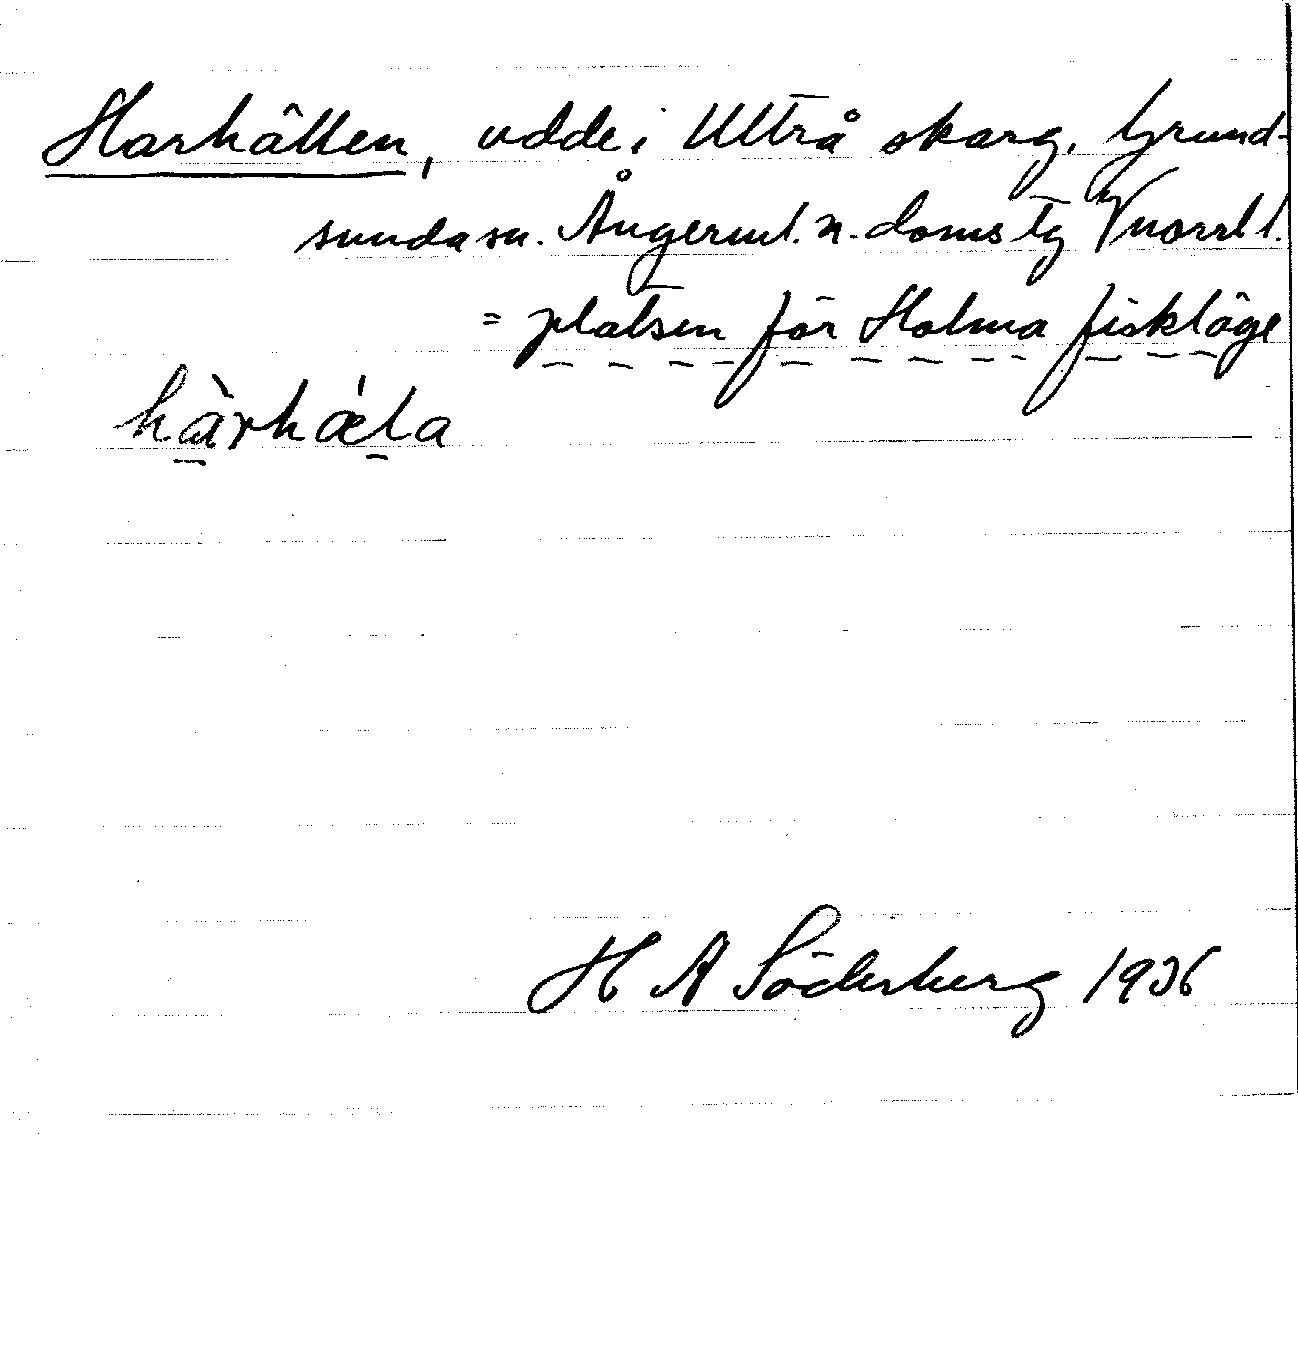 Harhällen, udde i Ullrå skärg. Grund-
sunda sn. Ångerml. n. doms tg Vnorrl l.
= platsen för Holma fiskläge
hàrhǽla
H A Söderberg 1936